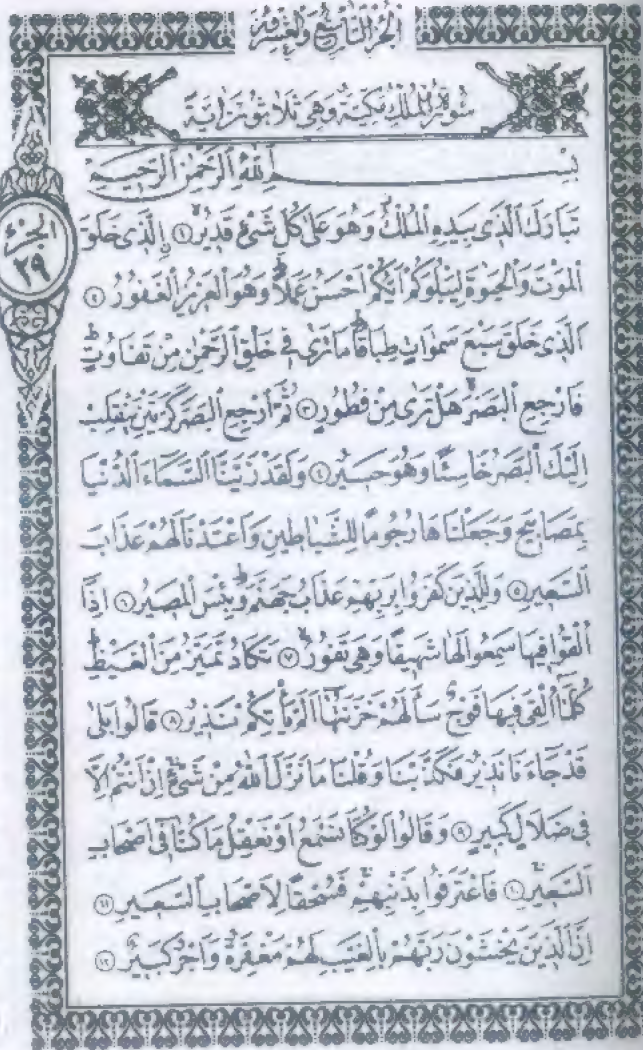 الجزء التاسع والعشرون
سُورَةُ الْمُلْكِ مَكِّيَّةٌ وَهِيَ ثَلَاثُونَ آيَةً
بِسْمِ اللّٰهِ الرَّحْمٰنِ الرَّحِيمِ
تَبَارَكَ الَّذِى بِيَدِهِ الْمُلْكُ وَهُوَ عَلٰى كُلِّ شَىْءٍ قَدِيرٌ ۝١ اَلَّذِى خَلَقَ
الْمَوْتَ وَالْحَيٰوةَ لِيَبْلُوَكُمْ اَيُّكُمْ اَحْسَنُ عَمَلًا وَهُوَ الْعَزِيزُ الْغَفُورُ ۝٢
اَلَّذِى خَلَقَ سَبْعَ سَمٰوَاتٍ طِبَاقًا مَا تَرٰى فِى خَلْقِ الرَّحْمٰنِ مِنْ تَفَاوُتٍ
فَارْجِعِ الْبَصَرَ هَلْ تَرٰى مِنْ فُطُورٍ ۝٣ ثُمَّ ارْجِعِ الْبَصَرَ كَرَّتَيْنِ يَنْقَلِبْ
اِلَيْكَ الْبَصَرُ خَاسِئًا وَهُوَ حَسِيرٌ ۝٤ وَلَقَدْ زَيَّنَّا السَّمَاءَ الدُّنْيَا
بِمَصَابِيحَ وَجَعَلْنَاهَا رُجُومًا لِلشَّيَاطِينِ وَاَعْتَدْنَا لَهُمْ عَذَابَ
السَّعِيرِ ۝٥ وَلِلَّذِينَ كَفَرُوا بِرَبِّهِمْ عَذَابُ جَهَنَّمَ وَبِئْسَ الْمَصِيرُ ۝٦ اِذَا
اُلْقُوا فِيهَا سَمِعُوا لَهَا شَهِيقًا وَهِىَ تَفُورُ ۝٧ تَكَادُ تَمَيَّزُ مِنَ الْغَيْظِ
كُلَّمَا اُلْقِىَ فِيهَا فَوْجٌ سَاَلَهُمْ خَزَنَتُهَا اَلَمْ يَأْتِكُمْ نَذِيرٌ ۝٨ قَالُوا بَلٰى
قَدْ جَاءَنَا نَذِيرٌ فَكَذَّبْنَا وَقُلْنَا مَا نَزَّلَ اللّٰهُ مِنْ شَىْءٍ اِنْ اَنْتُمْ اِلَّا
فِى ضَلَالٍ كَبِيرٍ ۝٩ وَقَالُوا لَوْ كُنَّا نَسْمَعُ اَوْ نَعْقِلُ مَا كُنَّا فِى اَصْحَابِ
السَّعِيرِ ۝١٠ فَاعْتَرَفُوا بِذَنْبِهِمْ فَسُحْقًا لِاَصْحَابِ السَّعِيرِ ۝١١
اِنَّ الَّذِينَ يَخْشَوْنَ رَبَّهُمْ بِالْغَيْبِ لَهُمْ مَغْفِرَةٌ وَاَجْرٌ كَبِيرٌ ۝١٢
الجزء
٢٩